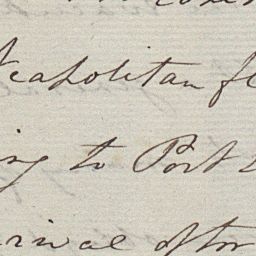 Neapolitan fl
ing to Port
rival after